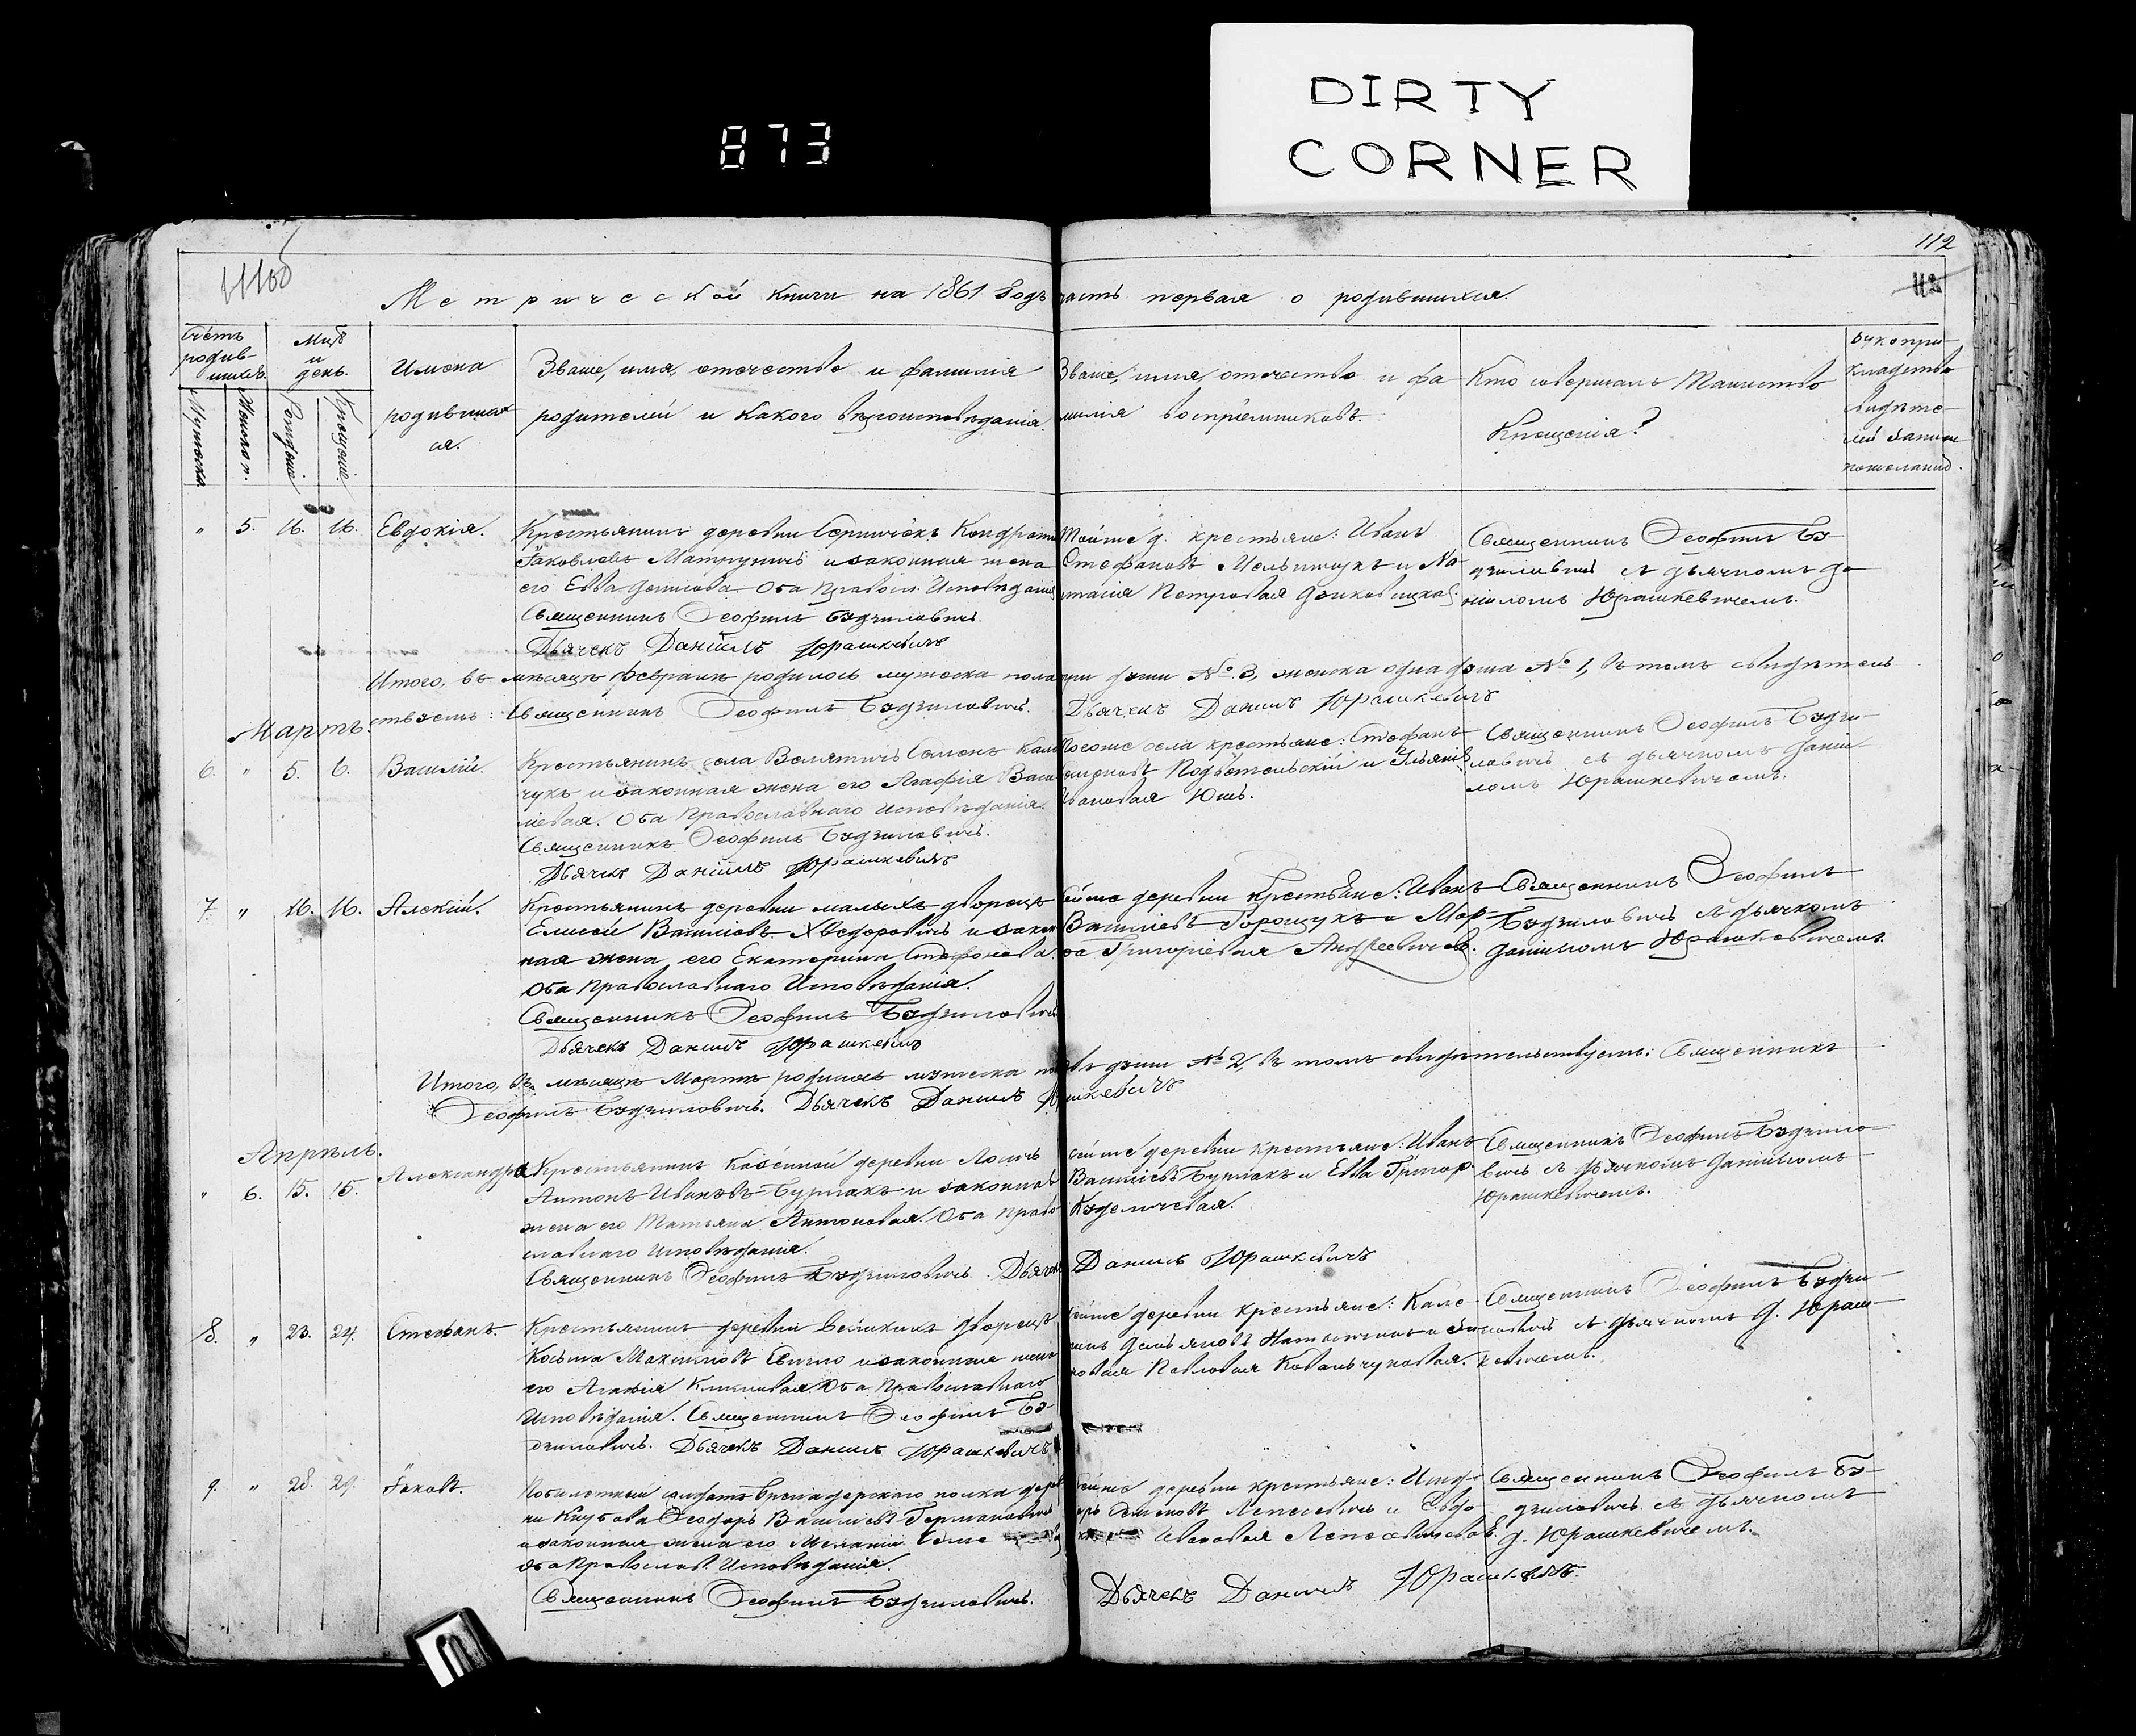 DIRTY
CORNER
873
112
Метрической книги на 1861 годъ часть первая о родившихся.
Счетъ родив-шихся.
Мужеска
Женска п.
и день.
Рожденіе.
Крещеніе.
Имена родивших ся.
Званіе, имя, отечество и фамилія
родителей и какого вѣроисповѣданія.
Званіе, имя, отечество и фа
милія воспріемниковъ.
Кто совершалъ Таинство
Крещенія?
рукопри-
кладство
свидѣте-
лей записи
по желанію.
" 5. 16. 16. Евдокія.
Крестьянинъ деревни Кондратій
Яковлевъ и законная жена
его Евва Денисова. Оба Правосл. Исповѣданія
Священникъ Ѳеофилъ Будзиловичъ.
Дьячекъ Даніилъ Юрашкевичъ
Тойже д. крестьяне: Иванъ
Стефановъ Мельничукъ и На
талія Петровая
Священникъ Ѳеофилъ Бу
дзиловичъ съ дьячкомъ Да
ніиломъ Юрашкевичемъ.
Итого, въ мѣсяцѣ Февралѣ родилось мужеска пола три души №. 3, женска одна душа № 1, въ томъ свидѣтель
ствуемъ: Священникъ Ѳеофилъ Будзиловичъ. Дьячекъ Даніилъ Юрашкевичъ
Мартъ.
6. " 5. 6. Василій.
Крестьянинъ села Семенъ
чукъ и законная жена его Агафія Васи
ліевая. Оба Православнаго Исповѣданія.
Священникъ Ѳеофилъ Будзиловичъ.
Дьячекъ Даніилъ Юрашкевичъ
Тогоже села крестьяне: Стефанъ
Семеновъ и
Ивановая Юшъ.
Священникъ Ѳеофилъ Будзи-
ловичъ съ дьячкомъ Даніи-
ломъ Юрашкевичемъ.
7. " 16. 16. Алексій.
Крестьянинъ деревни малыхъ дворецъ
Елисей Василіевъ Хведоровичъ и закон
ная жена его Екатерина Стефанова.
Оба Православнаго Исповѣданія.
Священникъ Ѳеофилъ Будзиловичъ
Дьячекъ Даніилъ Юрашкевичъ
Тойже деревни крестьяне: Иванъ
Василіевъ Горощукъ и Мар
ѳа Григоріевая
Священникъ Ѳеофилъ
Будзиловичъ съ дьячкомъ
Даніиломъ Юрашкевичемъ.
Итого, въ мѣсяцѣ Мартѣ родилось мужеска двѣ души № 2, въ томъ свидѣтельствуемъ: Священникъ
Ѳеофилъ Будзиловичъ. Дьячекъ Даніилъ Юрашкевичъ
Апрѣль.
" 6. 15. 15. Александра
Крестьянинъ казенной деревни
Антонъ Ивановъ Бурмакъ и законная
жена его Татьяна Антоновая. Оба Право
славнаго Исповѣданія.
Священникъ Ѳеофилъ Будзиловичъ. Дьячекъ Даніилъ Юрашкевичъ
Тойже деревни крестьяне: Иванъ
Василіевъ Бурмакъ и Евва Григор.
Священникъ Ѳеофилъ Будзило-
вичъ съ дьячкомъ Даніиломъ
Юрашкевичемъ.
8. " 23. 24. Стефанъ.
Крестьянинъ деревни Великихъ дворецъ
Козьма Максимовъ и законная жена
его Оба Православнаго
Исповѣданія. Священникъ Ѳеофилъ Бу-
дзиловичъ. Дьячекъ Даніилъ Юрашкевичъ
Тойже деревни крестьяне:
Павловая Ковальчуковая.
Священникъ Ѳеофилъ Будзи-
ловичъ съ дьячкомъ Д. Юраш-
кевичемъ.
9. " 28. 29. Яковъ.
солдатъ Гренадерскаго полка дерев
ни Ѳеодоръ Василіевъ Германовичъ
и законная жена его Меланія
Оба Православ. Исповѣданія.
Священникъ Ѳеофилъ Будзиловичъ.
Тойже деревни крестьяне:
Семеновъ и Евдо
Ивановая
Дьячекъ Даніилъ Юрашкевичъ.
Священникъ Ѳеофилъ Бу-
дзиловичъ съ дьячкомъ
Д. Юрашкевичемъ.